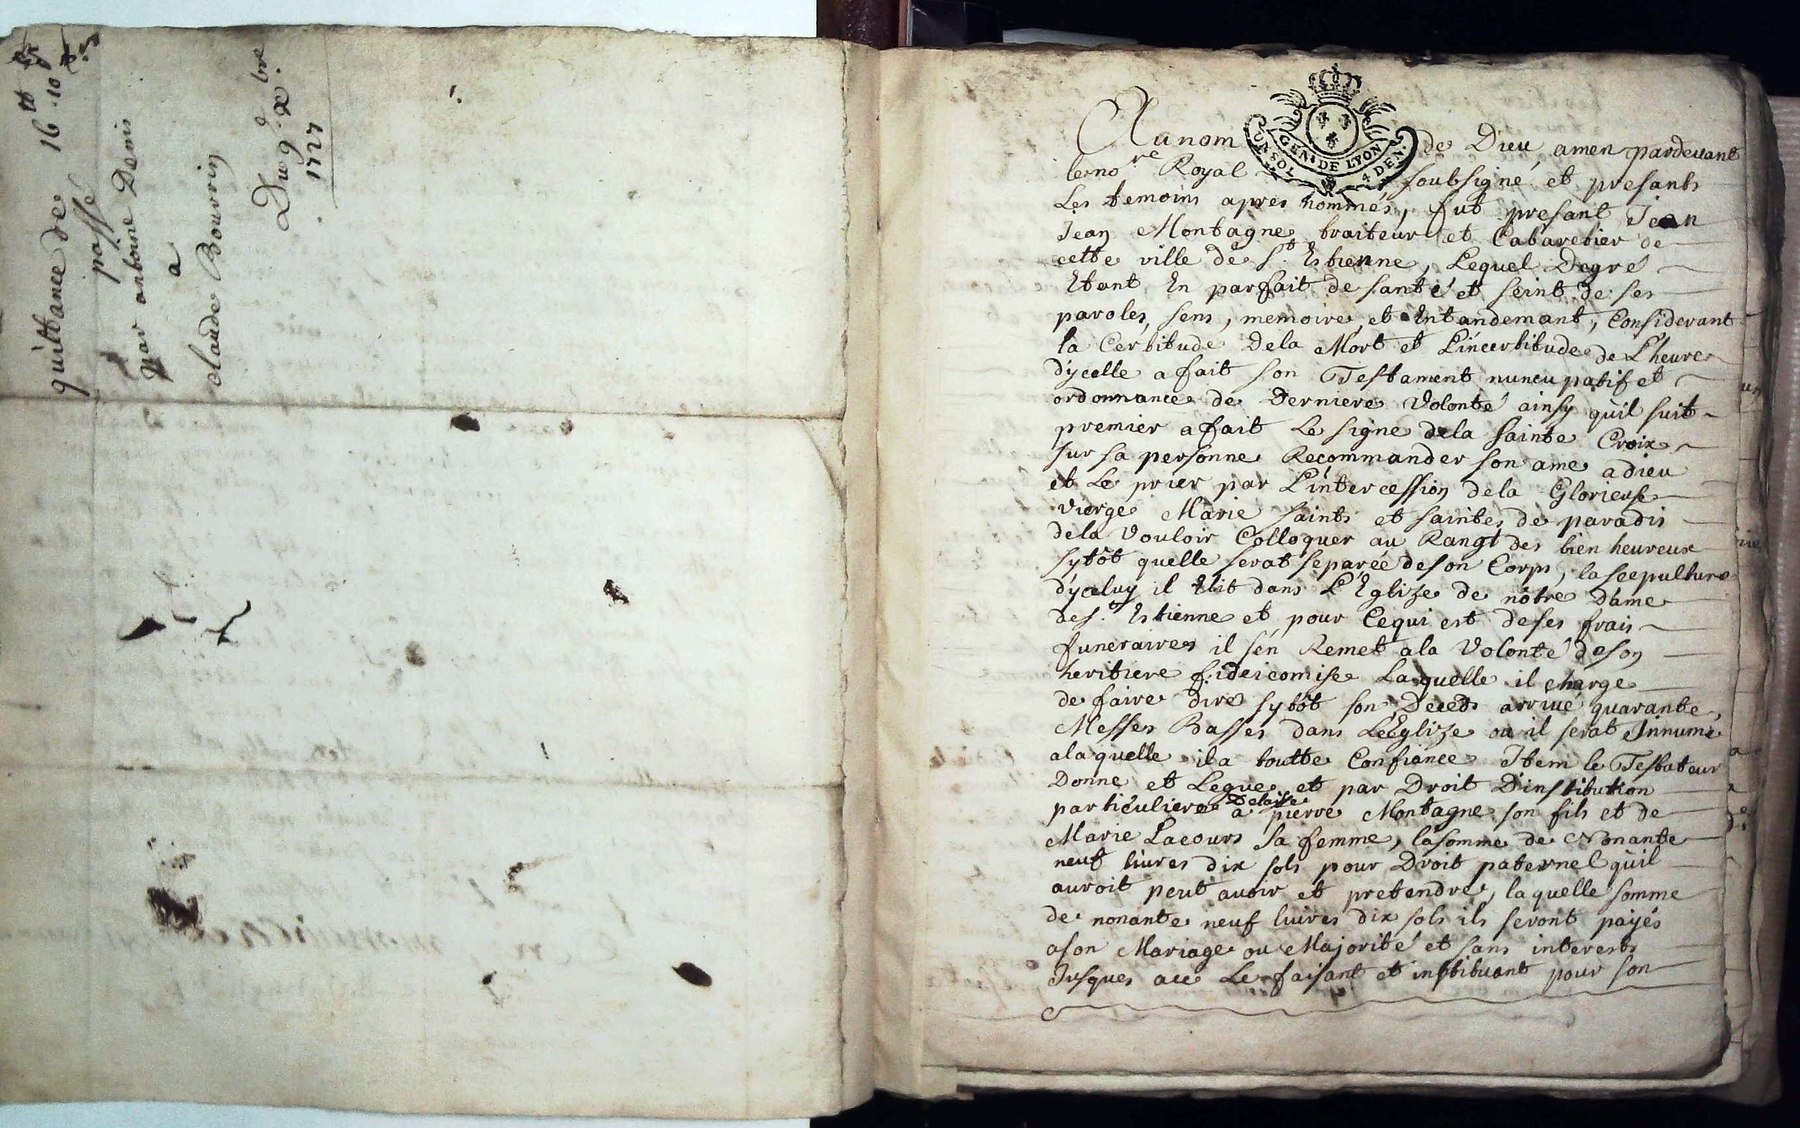 quittance de 16 tt 10 s
passé
par antoine Denis
a
claude Bourrin
Du 9e xbre
1727
GEN. DE LYON
UN SOL 4 DEN.
Au nom de Dieu amen pardevant
le no.re Royal soubsigné et presants
Les temoins apres nommés, fut presant Jean
Jean Montagne traiteur et Cabaretier de
cette ville de St Estienne, Lequel Degré
Etant En parfait de santé et seint de ses
paroles, sens, memoire, et Entandemant, Considerant
la Certitude Dela Mort et L'incertitude de L'heure
d'ycelle a fait son Testament nuncupatif et
ordonnance de Derniere Volonté ainsy qu'il suit
premier a fait Le signe dela Sainte Croix
sur sa personne Recommander son ame a dieu
et Le prier par L'intercession dela Glorieuse
vierge Marie saints et saintes de paradis
dela Vouloir Colloquer au Rangt des bien heureux
sytôt quelle serat separéé de son Corps, la seepulture
d'yceluy il Elit dans L'Eglize de nôtre Dame
de St Estienne et pour Cequi est de ses frais
funeraires il s'en Remet a la Volonté de son
heritiere fideicomise Laquelle il charge
de faire dire sytôt son Deceds arrivé quarante
Messes Basses dans L'Eglize ou il serat Innumé
alaquelle il a toutte Confiance Item le Testateur
Donne et Legue et par Droit D'institution
particuliere Delaisse a pierre Montagne son fils et de
Marie Lacours sa femme, la somme de Nonante
neuf livres dix sols pour Droit paternel qu'il
auroit peut avoir et pretendre, laquelle somme
de nonante neuf livres dix sols ils seront payés
a son Mariage ou Majorité et sans interests
Jusques acé Le faisant et instituant pour son